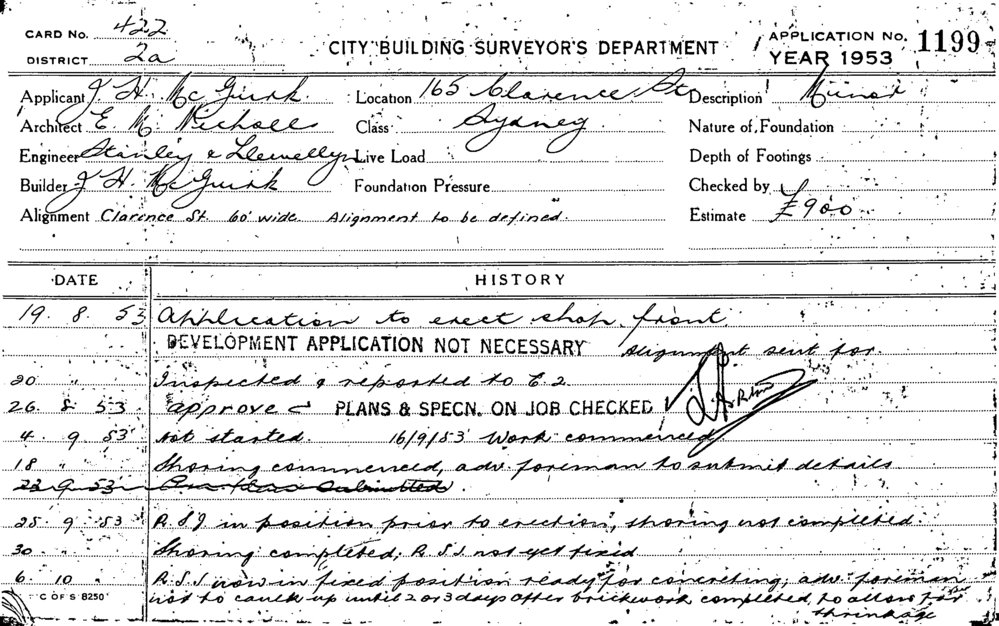 CARD No. 422
DISTRICT 2a
CITY BUILDING SURVEYOR'S DEPARTMENT
APPLICATION No. 1199
YEAR 1953
Applicant J H McGurk Location 165 Clarence St Description Minor
Architect E. M. Nicholls Class Sydney Nature of Foundation
Engineer Stanley & Llewellyn Live Load Depth of Footings
Builder J H McGurk Foundation Pressure Checked by
Alignment Clarence St. 60' wide. Alignment to be defined. Estimate £900
DATE HISTORY
19. 8. 53 Application to erect shop front
DEVELOPMENT APPLICATION NOT NECESSARY Alignment sent for.
20 " Inspected & reported to E.2.
26. 8. 53. approved PLANS & SPECN. ON JOB CHECKED
4. 9. 53 Not started. 16/9/53 Work commenced
18 " Shoring commenced, adv. foreman to submit details
23 9 53 submitted.
25. 9. 53 R.S.J in position prior to erection, shoring not completed.
30 " Shoring completed; R.S.J. not yet fixed
6. 10 " R.S.J now in fixed position ready for concreting, adv. foreman
C OF S 8250 not to caulk up until 2 or 3 days after brickwork completed, to allow for
shrinkage